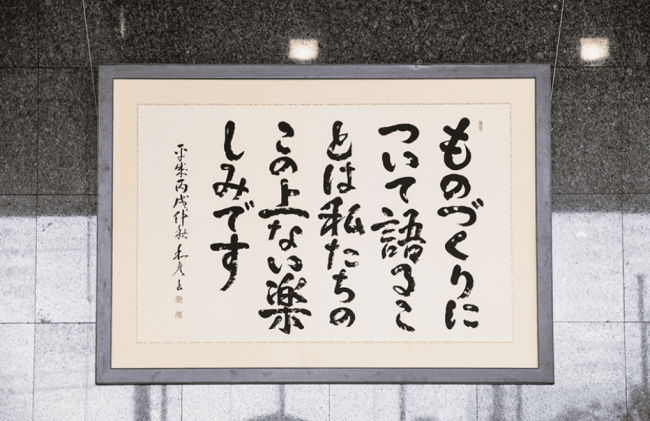 ものづくりに
ついて語るこ
とは私たちの
この上ない楽
しみです
平成丙戌仲秋